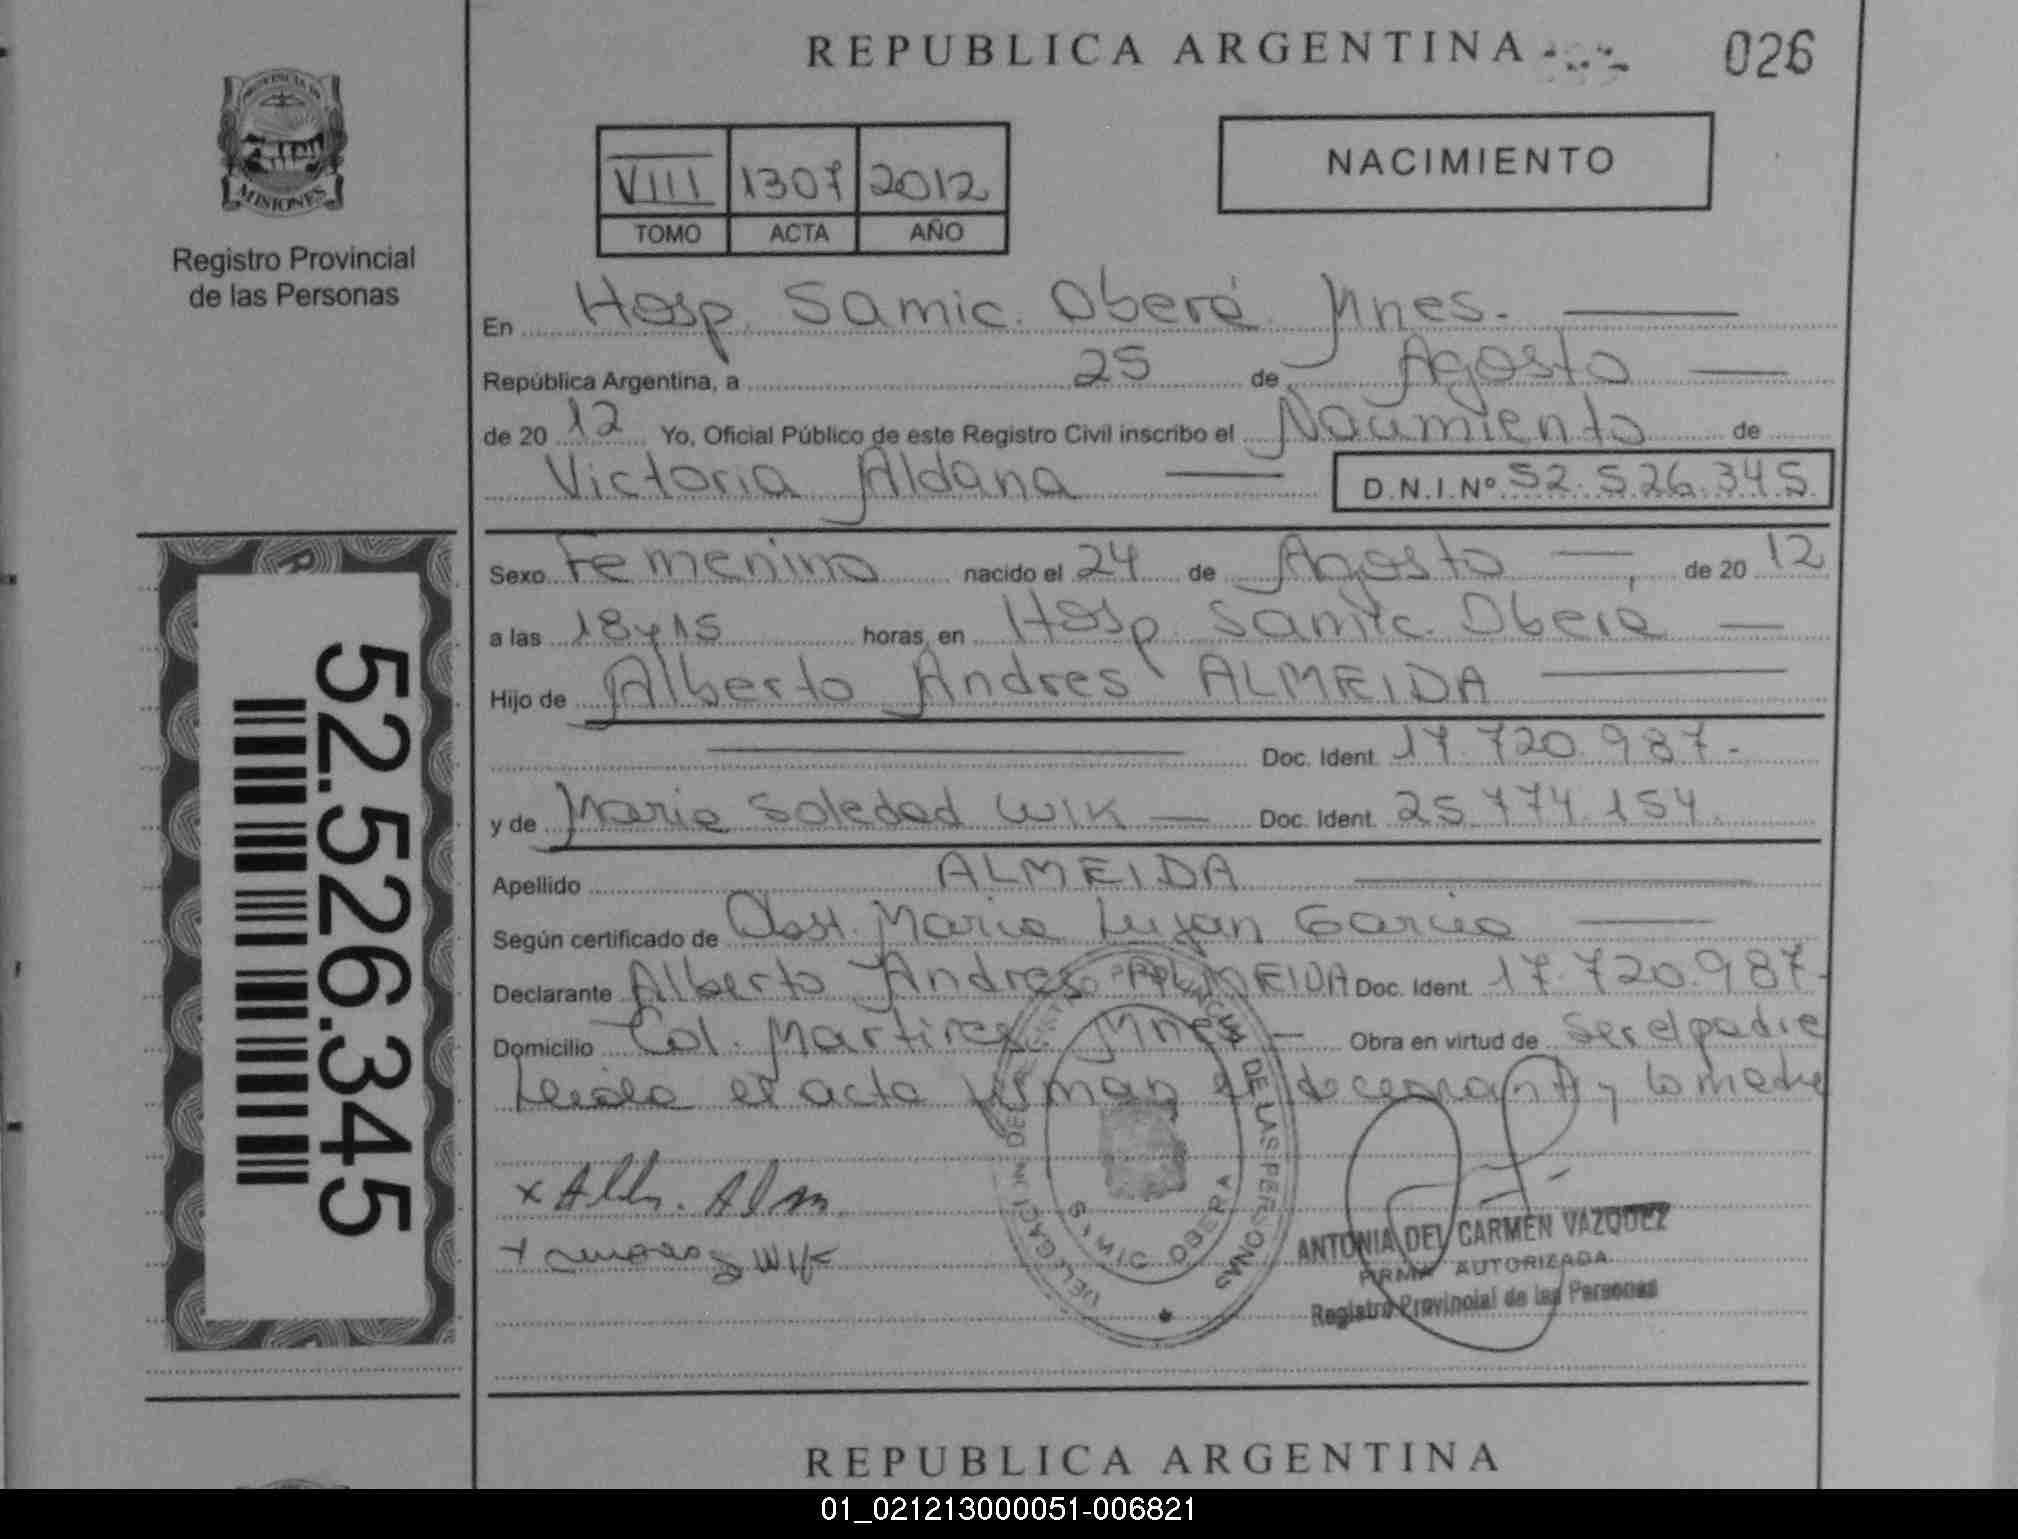 REPUBLICA ARGENTINA
026
PROVINCIA DE
MISIONES
Registro Provincial
de las Personas
VIII 1307 2012
TOMO ACTA AÑO
NACIMIENTO
En Hosp. Samic. Oberá Mnes.
República Argentina, a 25 de Agosto
de 20 12 Yo, Oficial Público de este Registro Civil inscribo el Nacimiento de
Victoria Aldana D.N.I.Nº 52.526.345
Sexo Femenino nacido el 24 de Agosto, de 20 12
a las 18y15 horas, en Hosp. Samic. Oberá
Hijo de Alberto Andres ALMEIDA
Doc. Ident. 17.720.987.-
y de Maria Soledad WIK Doc. Ident. 25.774.154.
Apellido ALMEIDA
Según certificado de Obst. Maria Lujan Garcia
Declarante Alberto Andres ALMEIDA Doc. Ident. 17.720.987.-
Domicilio Col. Martires Mnes Obra en virtud de ser el padre
Leida el acta firman el declarante y la madre
52.526.345
DE LAS PERSONAS
SAMIC OBERA
x Alb. Alm.
Wik
ANTONIA DEL CARMEN VAZQUEZ
FIRMA AUTORIZADA
Registro Provincial de las Personas
REPUBLICA ARGENTINA
01_021213000051-006821